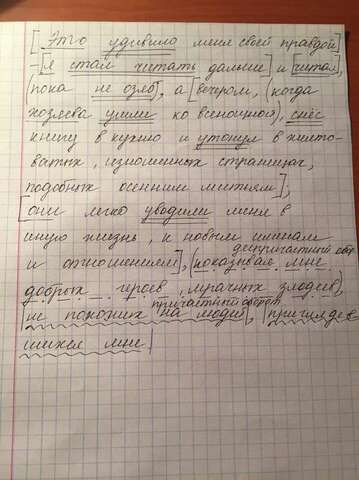 [Это удивило меня своей правдой]
- [я стал читать дальше] и [читал,
(пока не озяб), а (вечером, (когда
хозяева ушли ко всеночной), снёс
книгу в кухню и утонул в желто-
ватых, изношенных страницах,
подобных осенним листьям];
[они легко уводили меня в
иную жизнь, к новым именам
деепричастный обор.
и отношениям], |показывая мне
добрых героев, мрачных злодеев|,
причастный оборот
|не похожих на людей|, |пригляде-
вшихся мне|